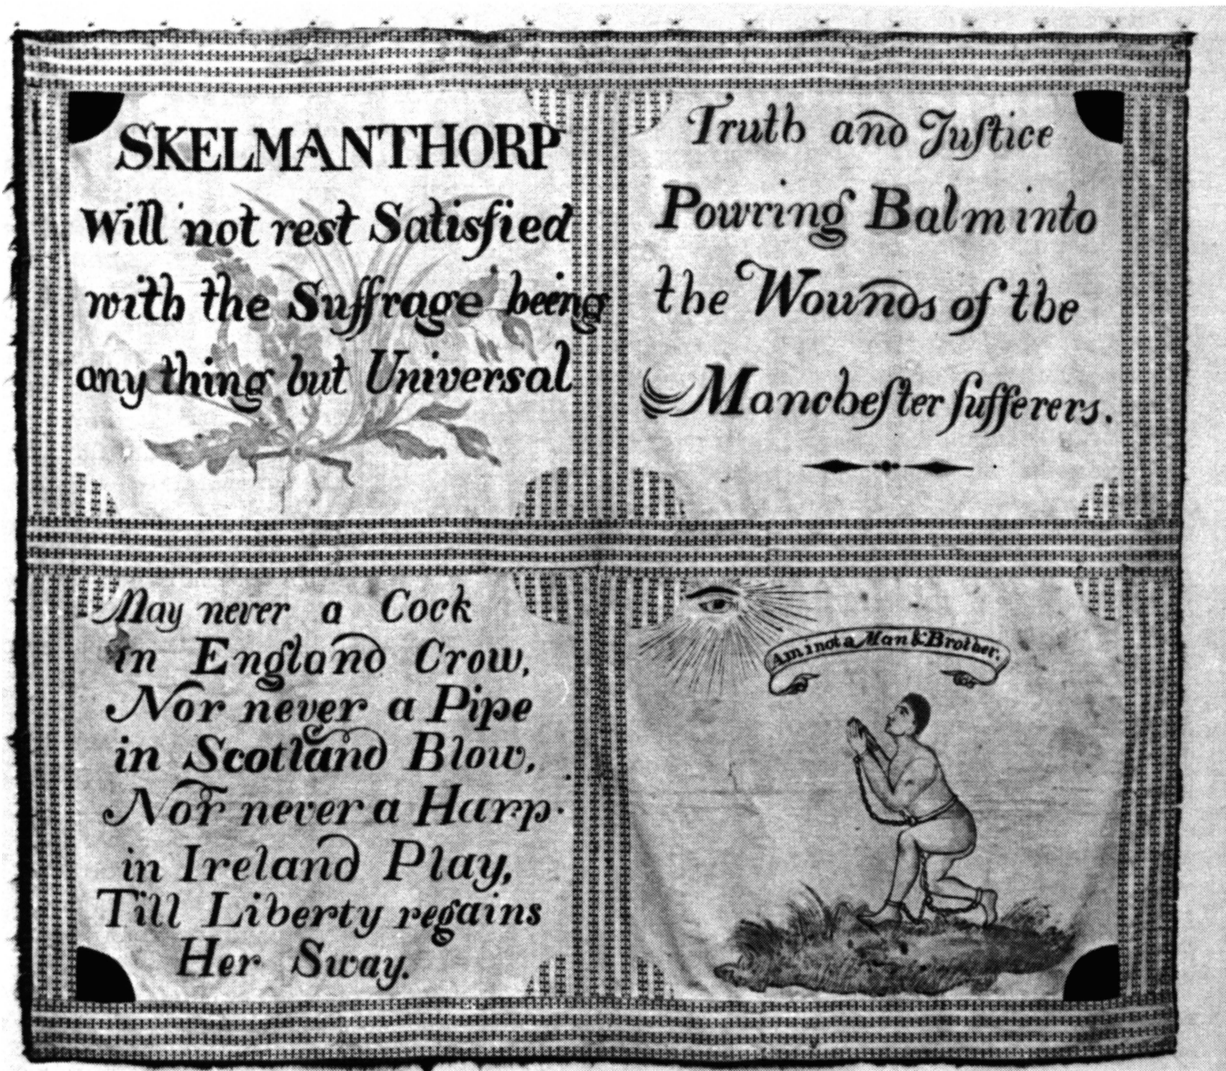 SKELMANTHORP
Will not rest Satisfied
with the Suffrage being
any thing but Universal
Truth and Juſtice
Powring Balm into
the Wounds of the
Mancheſter ſufferers.
May never a Cock
in England Crow,
Nor never a Pipe
in Scotland Blow,
Nor never a Harp
in Ireland Play,
Till Liberty regains
Her Sway.
Am I not a Man & Brother.